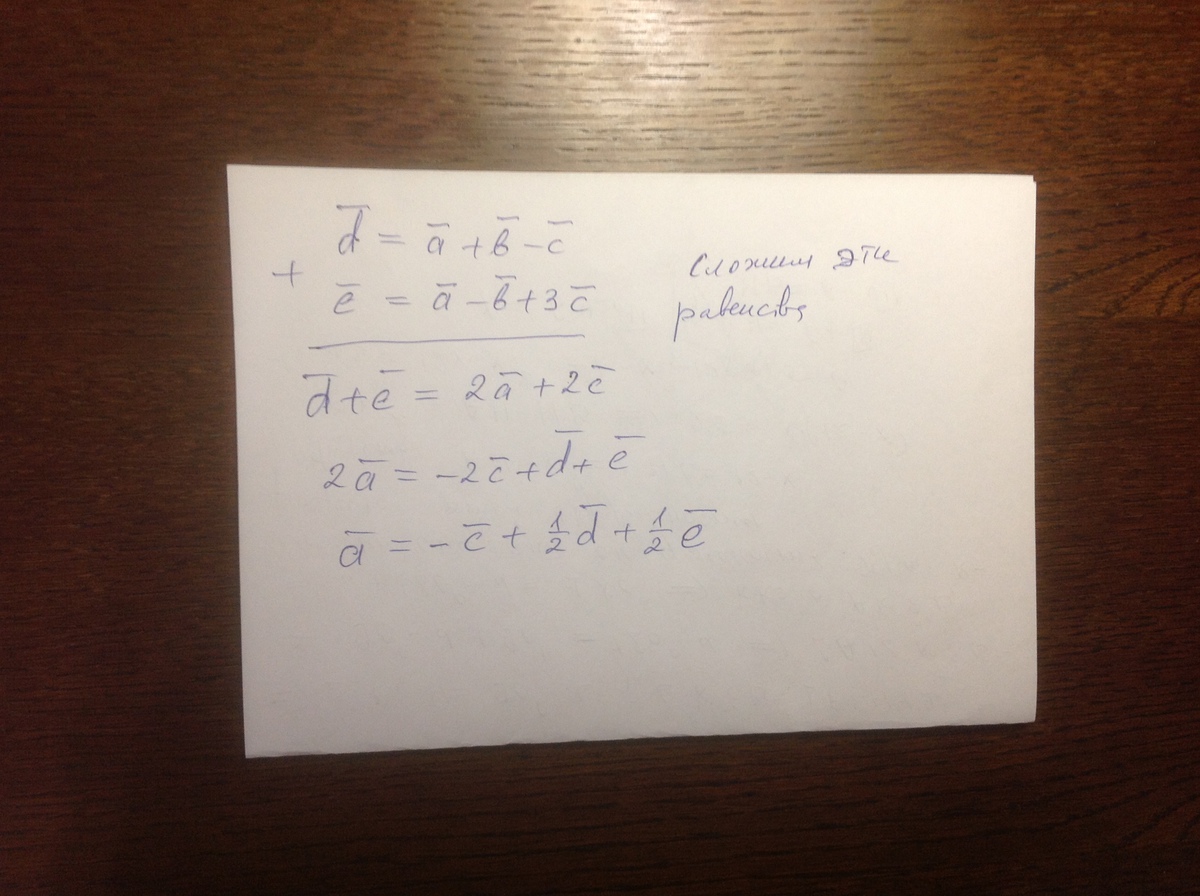 d̅ = a̅ + в̅ − c̅
+
e̅ = a̅ − в̅ + 3c̅
сложим эти
равенства
d̅ + e̅ = 2a̅ + 2c̅
2a̅ = −2c̅ + d̅ + e̅
a̅ = −c̅ + ½d̅ + ½e̅